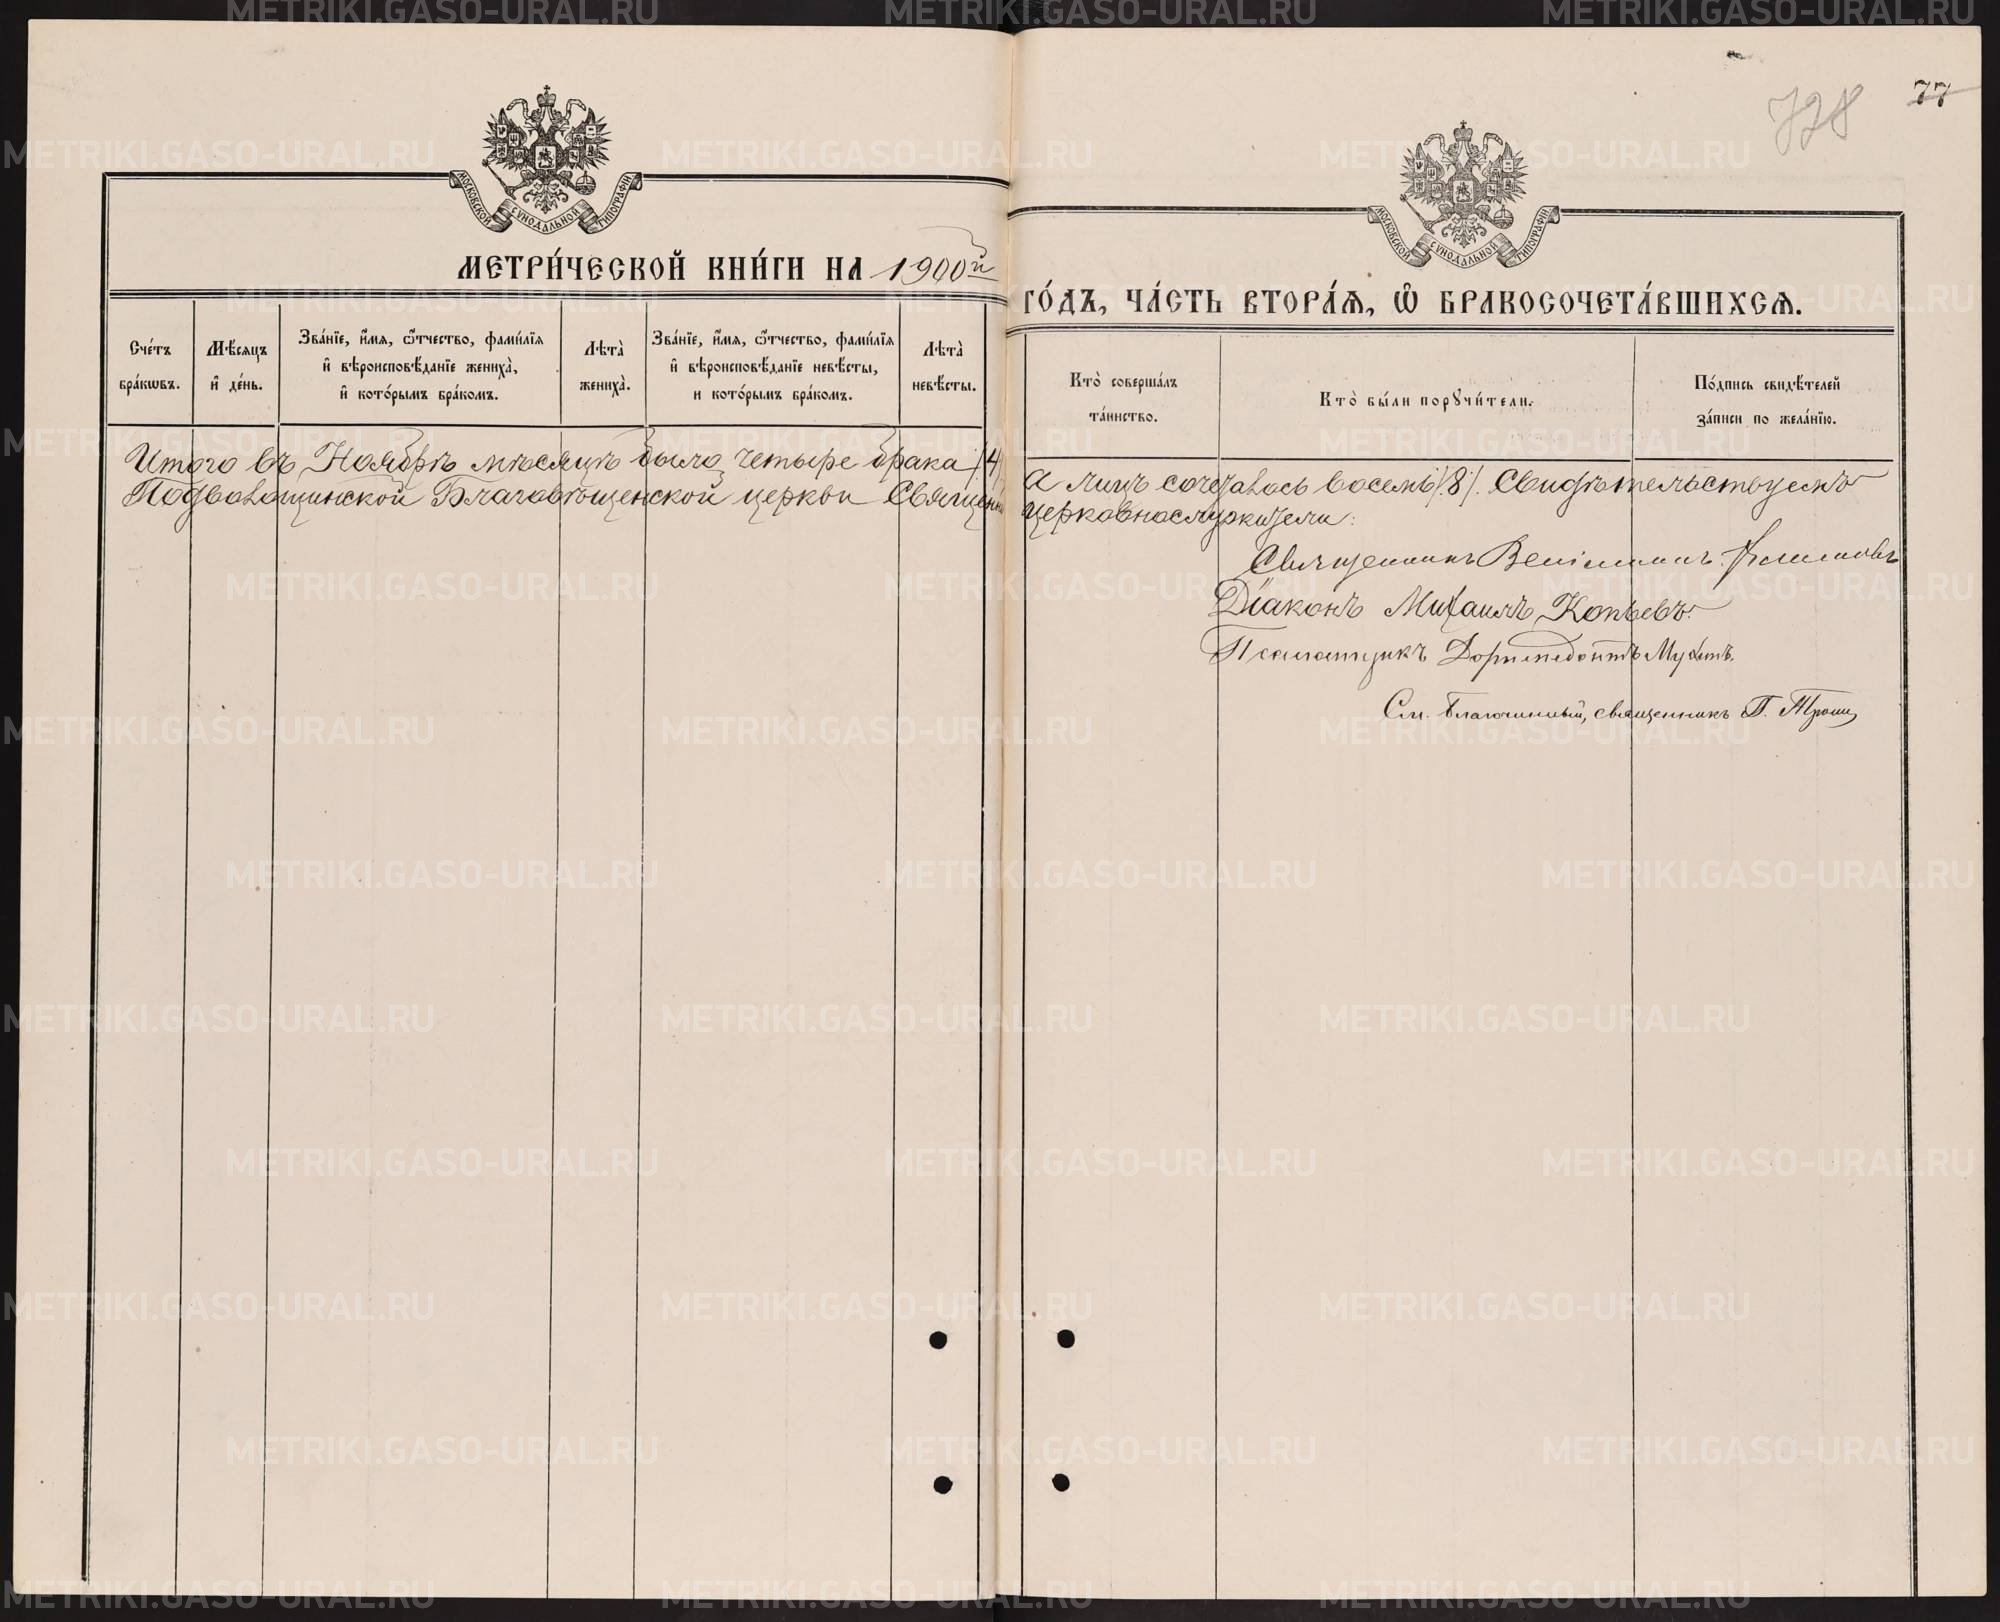 728
77
МОСКОВСКОЙ СѴНОДАЛЬНОЙ ТИПОГРАФІИ
МОСКОВСКОЙ СѴНОДАЛЬНОЙ ТИПОГРАФІИ
МЕТРИ́ЧЕСКОЙ КНИ́ГИ НА 1900й
ГО́ДЪ, ЧА́СТЬ ВТОРА́Я, Ѽ БРАКОСОЧЕТА́ВШИХСЯ.
Сче́тъ бра́кѡвъ.
Мѣ́сяцъ и҆ де́нь.
Зва́нїе, и҆́мя, ѻ҆́тчество, фами́лїя и҆ вѣроисповѣ́данїе жениха̀, и҆ кото́рымъ бра́комъ.
Лѣта̀ жениха̀.
Зва́нїе, и҆́мя, ѻ҆́тчество, фами́лїя и҆ вѣроисповѣ́данїе невѣ́сты, и кото́рымъ бра́комъ.
Лѣта̀ невѣ́сты.
Кто̀ соверша́лъ та́инство.
Кто̀ бы́ли порꙋчи́тели.
По́дпись свидѣ́телей за́писи по жела́нїю.
Итого въ Ноябрѣ мѣсяцѣ было четыре брака /4/
а лицъ сочеталось восемь /8/. Свидѣтельствуемъ
Подволошинской Благовѣщенской церкви Священно
церковнослужители:
Священникъ Веніаминъ
Діаконъ Михаилъ Копьевъ.
Псаломщикъ Доримедонтъ Мухинъ.
См. Благочинный, священникъ П.
METRIKI.GASO-URAL.RU